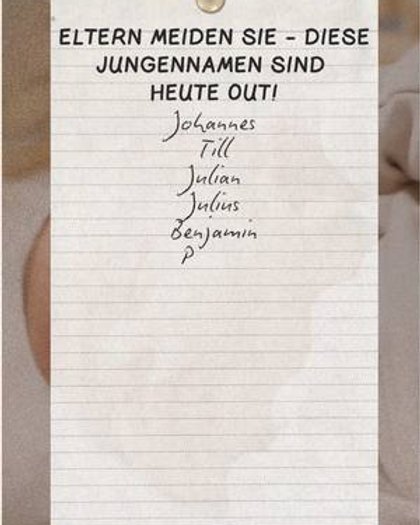 ELTERN MEIDEN SIE – DIESE
JUNGENNAMEN SIND
HEUTE OUT!
Johannes
Till
Julian
Julius
Benjamin
P